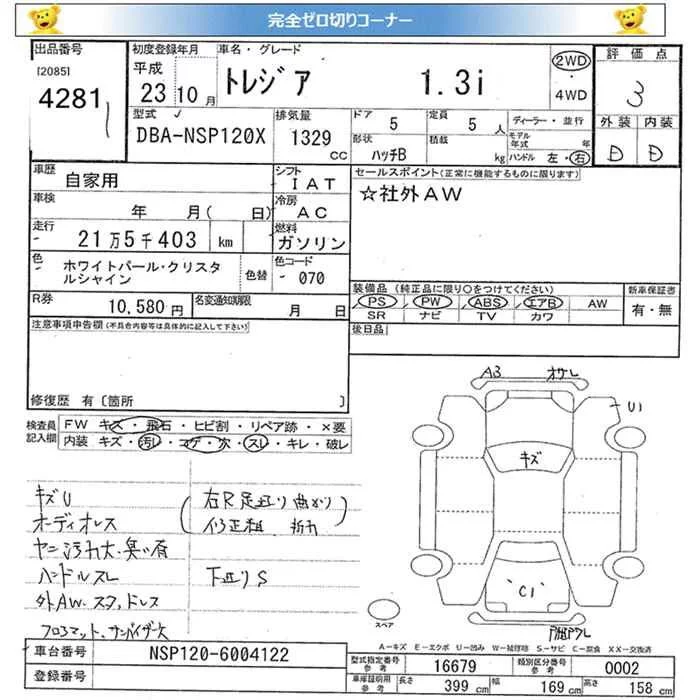 完全ゼロ切りコーナー
出品番号
[2085]
4281
初度登録年月
平成
23年10月
車名・グレード
トレジア 1.3i
2WD
・
4WD
評価点
3
外装 内装
D D
型式
DBA-NSP120X
排気量
1329
cc
ドア 5
定員 5人
形状 ハッチB
積載 kg
ディーラー・並行
モデル年式 年
ハンドル 左・右
車歴 自家用
シフト IAT
セールスポイント(正常に機能するものに限ります)
☆社外AW
車検 年 月( 日)
冷房 AC
走行 21万5千403 km
燃料 ガソリン
色 ホワイトパール・クリスタルシャイン
色替
色コード 070
装備品 (純正品に限り○をつけてください)
PS PW ABS エアB AW
SR ナビ TV カワ
新車保証書
有・無
R券 10,580円
名変通知期限 月 日
後日品
注意事項申告欄(不具合内容等は具体的に記入して下さい)
修復歴 有〔箇所 〕
検査員記入欄
FW キズ・飛石・ヒビ割・リペア跡・×要
内装 キズ・汚レ・コゲ・穴・スレ・キレ・破レ
A3
U1
キズ
C1
スペア
キズU
オーディオレス
ヤニ汚れ大・臭い有
ハンドルスレ
外AW.スタッドレス
フロアマット、サンバイザー欠
下廻りS
A-キズ E-エクボ U-凹み W-補修跡 S-サビ C-腐食 XX-交換済
車台番号 NSP120-6004122
登録番号
型式指定番号 参考 16679
類別区分番号 参考 0002
車庫証明用 参考
長さ 399 cm
幅 169 cm
高さ 158 cm